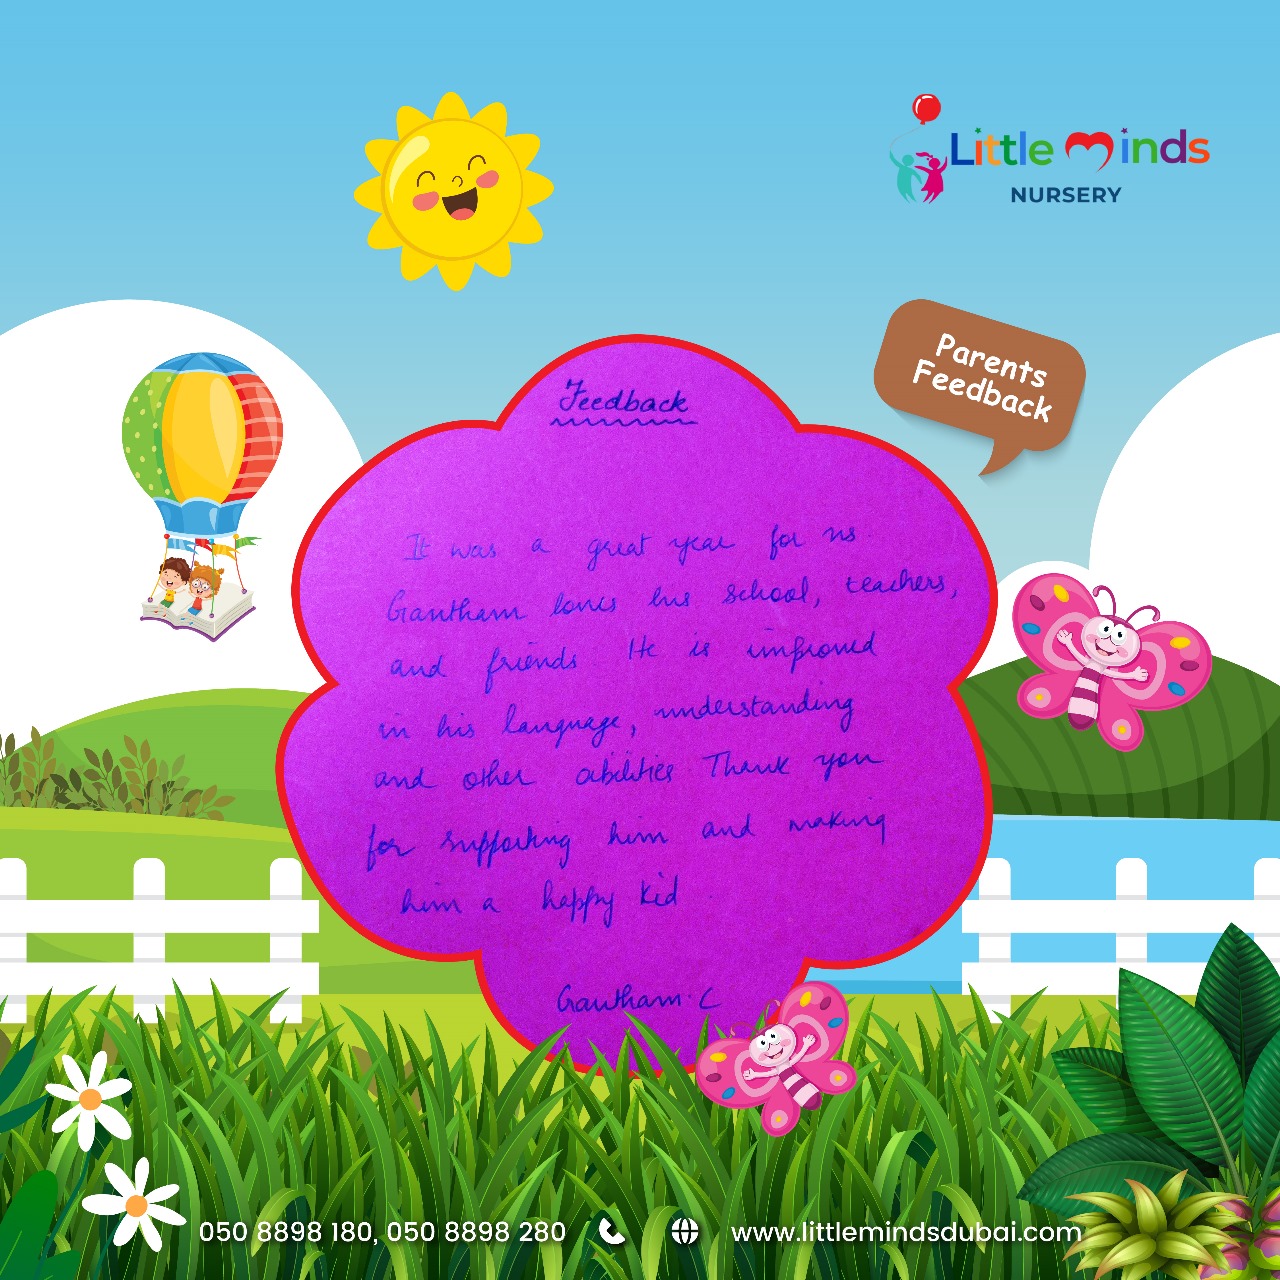 Little Minds
NURSERY
Parents
Feedback
Feedback
It was a great year for us.
Gautham loves his school, teachers,
and friends. He is improved
in his language, understanding
and other abilities Thank you
for supporting him and making
him a happy kid.
Gautham. C
050 8898 180, 050 8898 280
www.littlemindsdubai.com